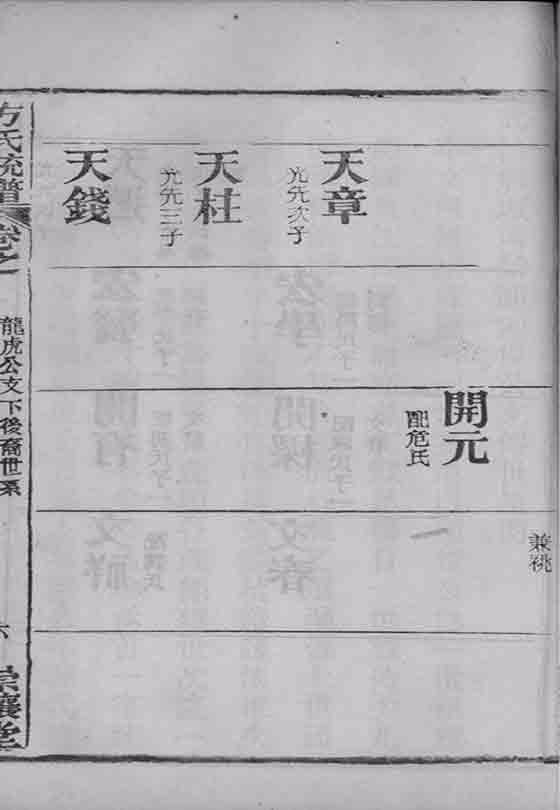 兼祧
開元
配危氏
天章
光先次子
天柱
光先三子
天錢
方氏統譜
卷之一
龍虎公支下後裔世系
六